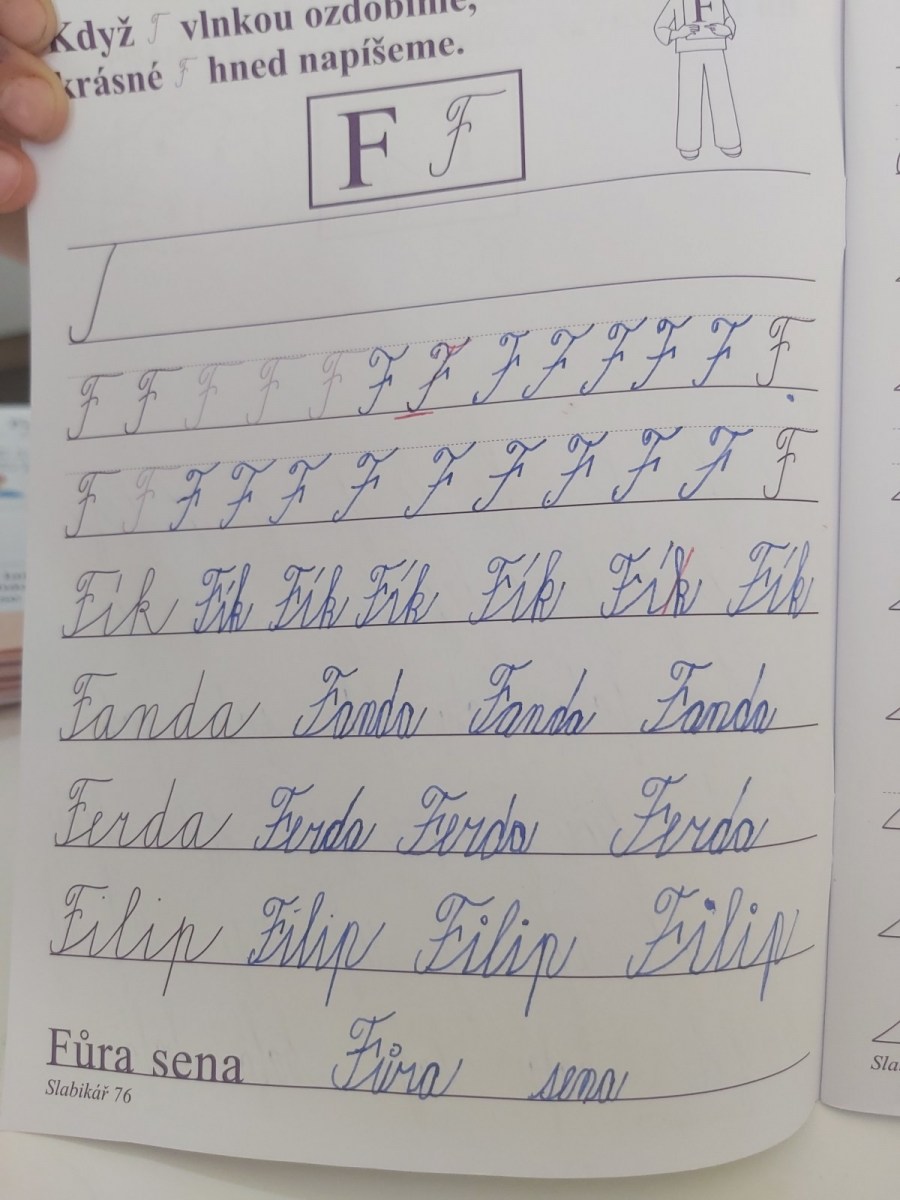 Když T vlnkou ozdobíme,
krásné F hned napíšeme.
F
F F
F F F F F F F F F F F F F
F F F F F F F F F F F F
Fík Fík Fík Fík Fík Fík Fík
Fanda Fanda Fanda Fanda
Ferda Ferda Ferda Ferda
Filip Filip Filip Filip
Fůra sena Fůra sena
Slabikář 76